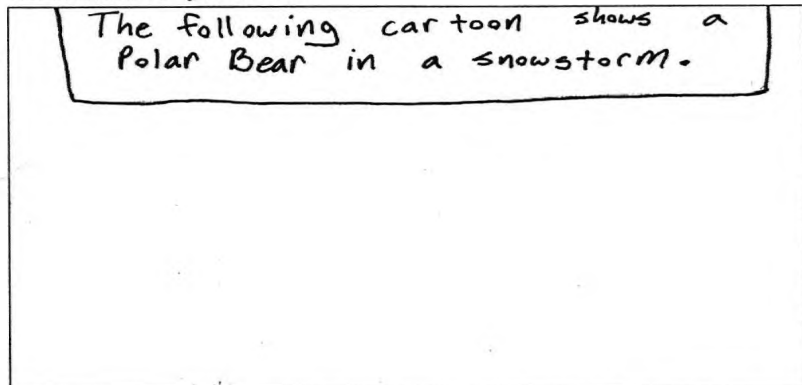 The following cartoon shows a
Polar Bear in a snowstorm.